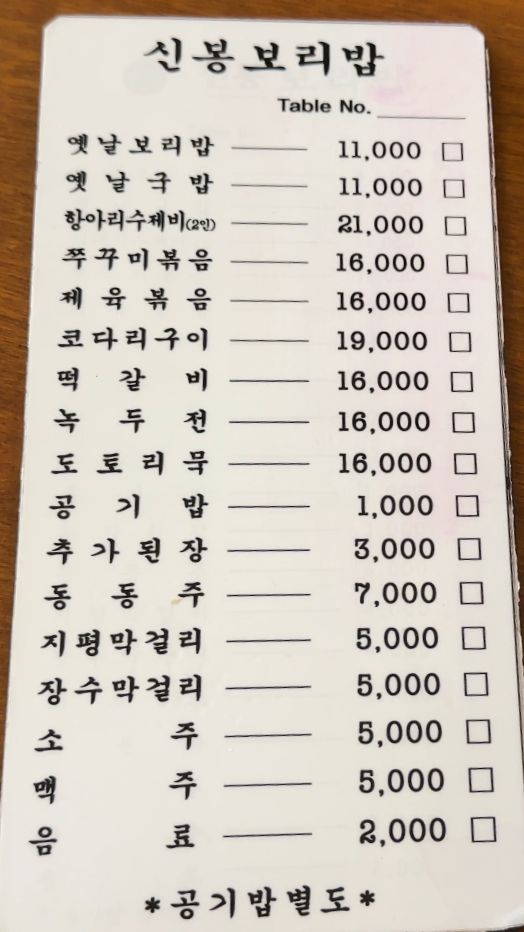 신봉보리밥
Table No.
옛날보리밥 11,000 □
옛날국밥 11,000 □
항아리수제비(2인) 21,000 □
쭈꾸미볶음 16,000 □
제육볶음 16,000 □
코다리구이 19,000 □
떡갈비 16,000 □
녹두전 16,000 □
도토리묵 16,000 □
공기밥 1,000 □
추가된장 3,000 □
동동주 7,000 □
지평막걸리 5,000 □
장수막걸리 5,000 □
소주 5,000 □
맥주 5,000 □
음료 2,000 □
*공기밥별도*